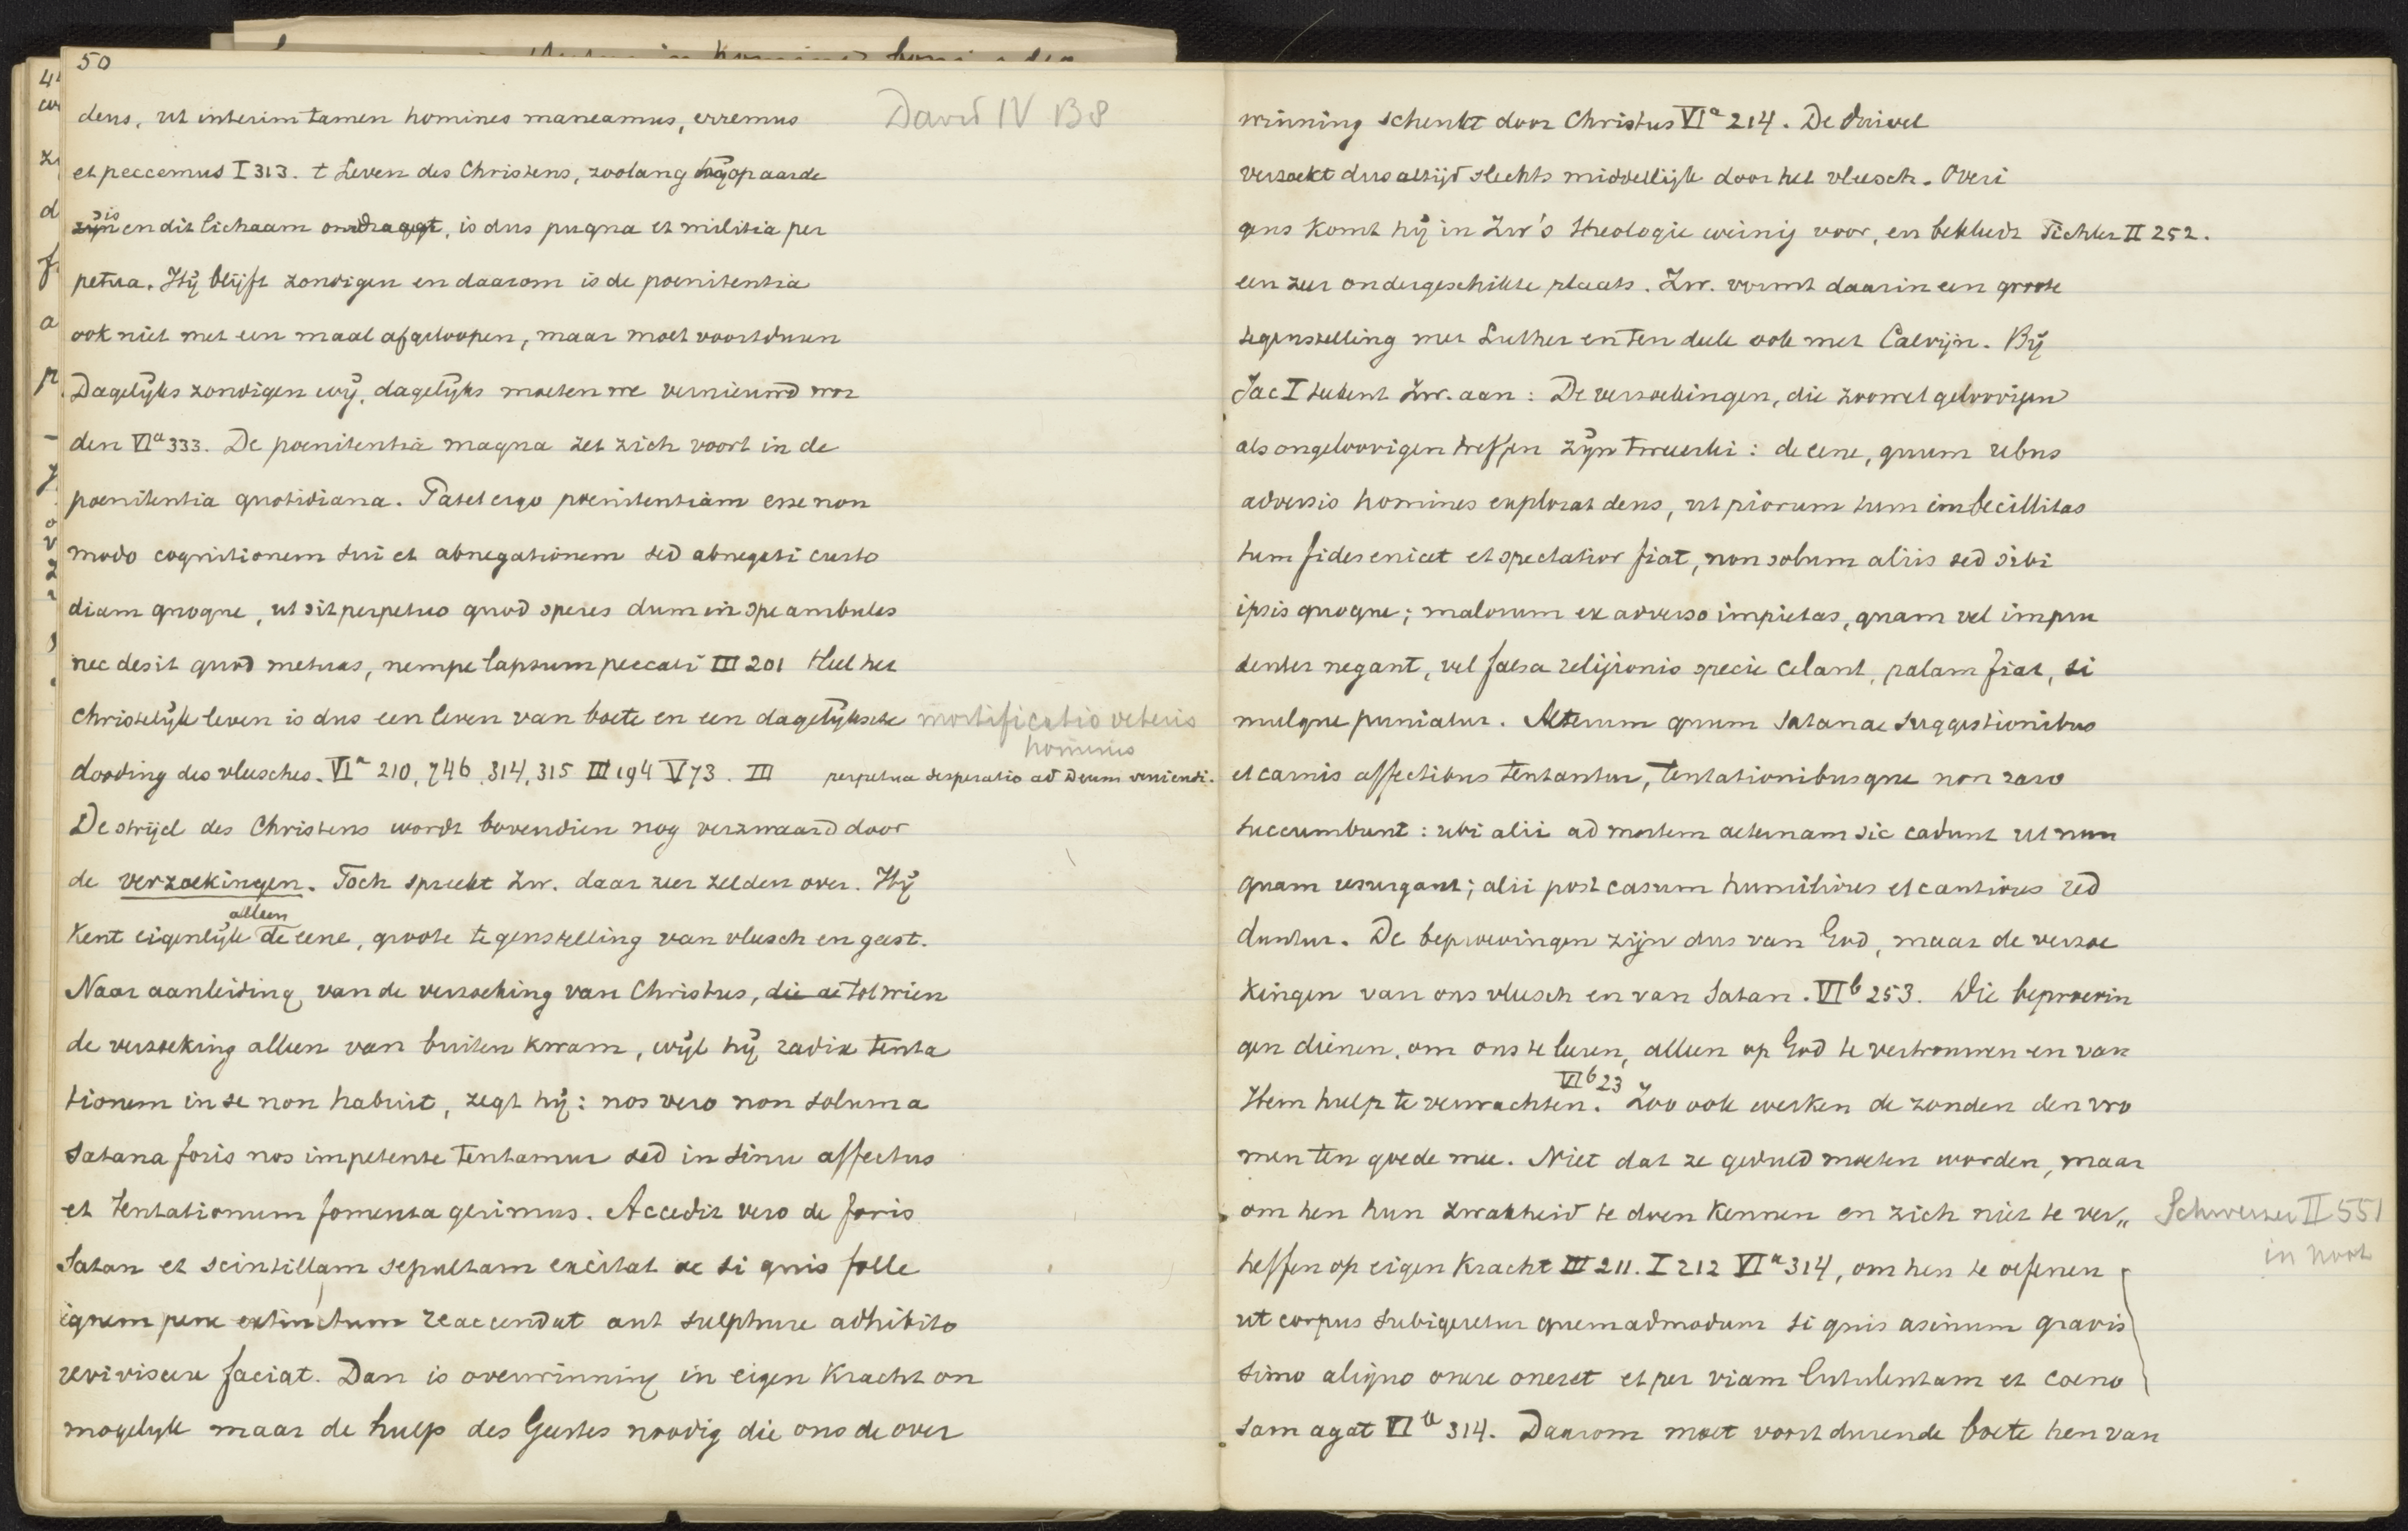 50
deus, ut interim tamen homines maneamus, erremus David IV B8
et peccemus I 313. t Leven des Christens, zoolang hij op aarde
is en dit lichaam omdraagt, is dus pugna et militia per
petua. Hij blijft zondigen en daarom is de poenitentia
ook niet met een maal afgeloopen, maar moet voortduren
Dagelijks zondigen wij, dagelijks moeten we vernieuwd wor
den VIa 333. De poenitentia magna zet zich voort in de
poenitentia quotidiana. Patet ergo poenitentiam esse non
modo cognitionem sui et abnegationem sed abnegati custo
diam quoque, ut sit perpetuo quod speres dum in spe ambules
nec desit quod metuas, nempe lapsum peccati III 201 Heel het
christelijk leven is dus een leven van boete en een dagelijksche mortificatio veteris
hominis
dooding des vleesches. VIa 210, 746, 314, 315 III 194 V 73. III perpetua desperatio ad Deum veniendi.
De strijd des Christens wordt bovendien nog verzwaard door
de verzoekingen. Toch spreekt Zw. daar zeer zelden over. Hij
alleen
kent eigenlijk de eene, groote tegenstelling van vleesch en geest.
Naar aanleiding van de verzoeking van Christus, die de tot wien
de verzoeking alleen van buiten kwam, wijl hij radix tenta
tionem in se non habuit, zegt hij: nos vero non solum a
Satana foris nos impetente tentamur sed in sinu affectus
et tentationum fomenta gerimus. Accedit vero de foris
Satan et scintillam sepultam excitat ac si quis folle
ignem pene extinctum reaccendat aut sulphure adhibito
reviviscere faciat. Dan is overwinning in eigen kracht on
mogelyk maar de hulp des Geestes noodig die ons de over
winning schenkt door Christus VIa 214. De duivel
verzoekt dus altijd slechts middellijk door het vleesch. Overi
gens komt hij in Zw's theologie weinig voor, en bekleedt Tichler II 252.
een zeer ondergeschikte plaats. Zw. vormt daarin een groote
tegenstelling met Luther en ten deele ook met Calvijn. Bij
Jac I teekent Zw. aan: De verzoekingen, die zoowel geloovigen
als ongeloovigen treffen zijn tweeerlei: de eene, quum rebus
adversis homines explorat deus, ut piorum tum imbecillitas
tum fides enicet et spectatior fiat, non solum aliis sed sibi
ipsis quoque; malorum ex adverso impietas, quam vel impru
denter negant, vel falsa religionis specie celant, palam fiat, si
mulque puniatur. Aeterum quum Satanae suggestionibus
et carnis affectibus tentantur, tentationibusque non raro
succumbunt: ubi alii ad mortem aeternam sic cadunt ut nun
quam resurgant; alii post casum humiliores et cautiores red
duntur. De beproevingen zijn dus van God, maar de verzoe
kingen van ons vleesch en van Satan. VIb 253. Die beproevin
gen dienen, om ons te leren, alleen op God te vertrouwen en van
VIb 23
Hem hulp te verwachten. Zoo ook werken de zonden den vro
men ten goede mee. Niet dat ze geduld moeten worden, maar
om hen hun zwakheid te doen kennen en zich niet te ver„ Schweizer II 551
in noot
heffen op eigen kracht III 211. I 212 VIa 314, om hen te oefenen
ut corpus subigeretur quemadmodum si quis asinum gravis
simo aliquo onere oneret et per viam lutulentam et coeno
sam agat VIa 314. Daarom moet voortdurende boete hen van